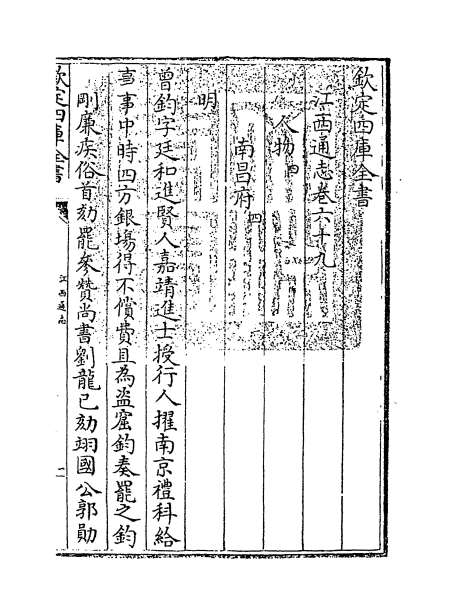 欽定四庫全書
江西通志卷六十九
人物四
南昌府四
明
曾鈞字廷和進賢人嘉靖進士授行人擢南京禮科給
事中時四方銀場得不償費且為盜窟鈞奏罷之鈞
剛廉疾俗首劾罷參贊尚書劉龍已劾翊國公郭勛
欽定四庫全書
江西通志